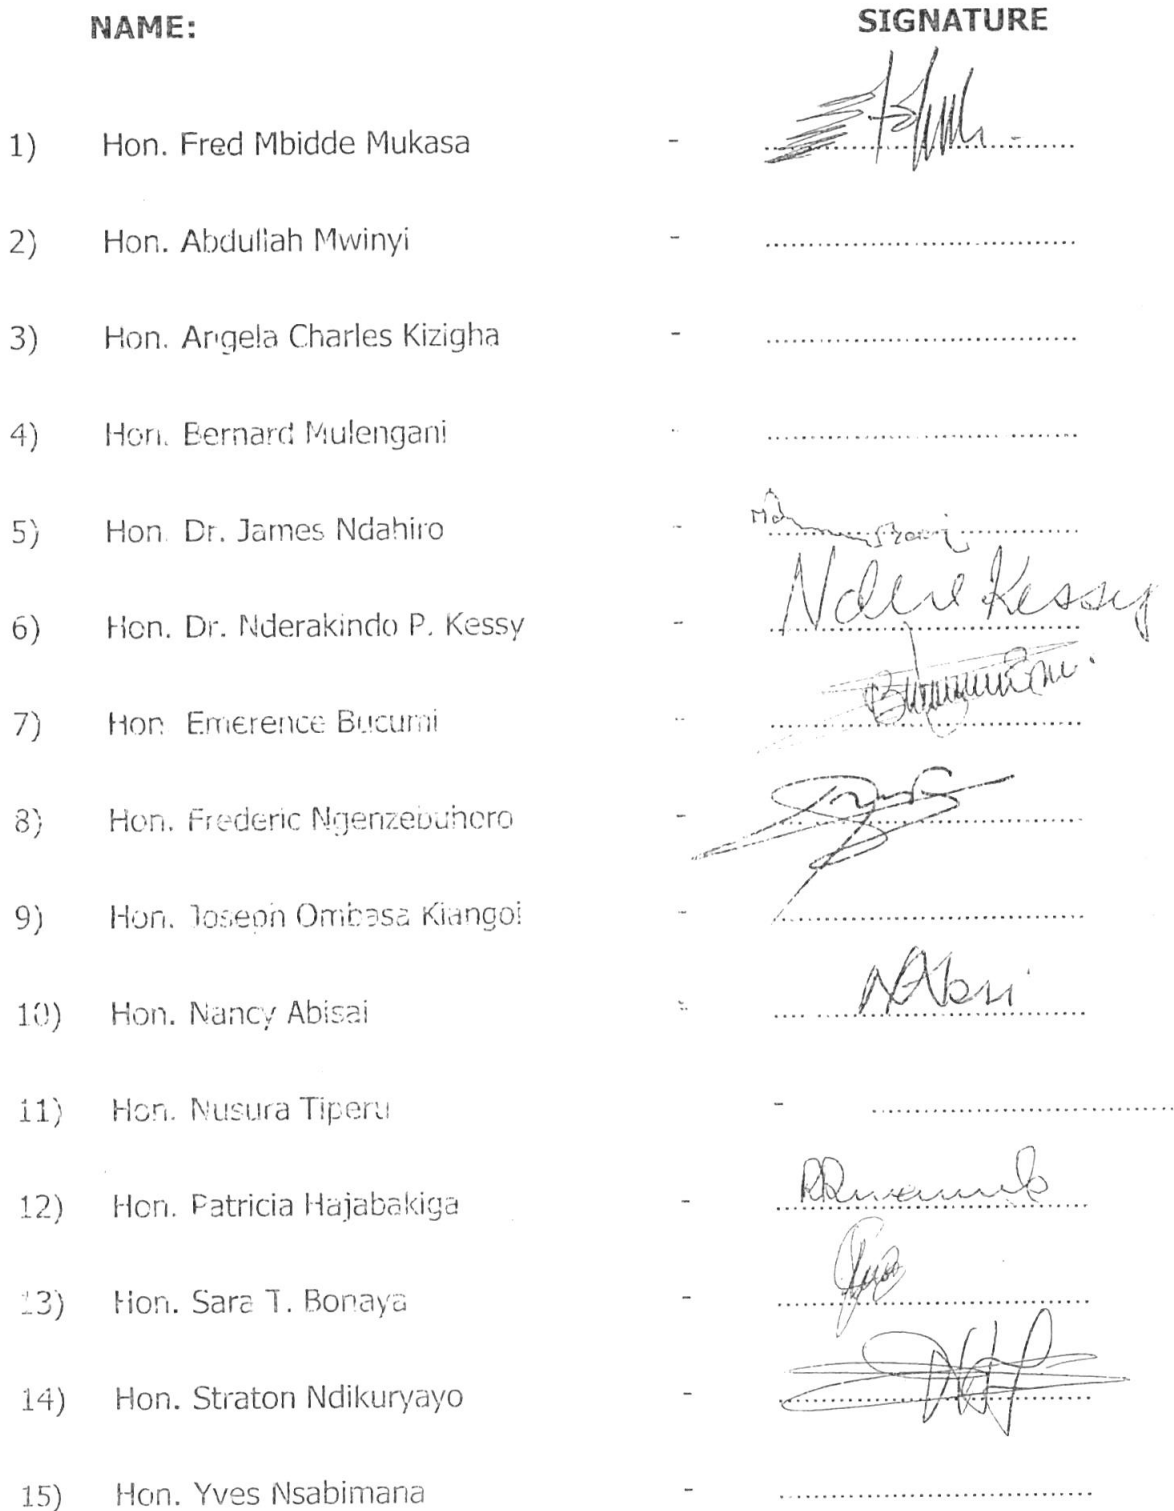 NAME: SIGNATURE
1) Hon. Fred Mbidde Mukasa -
2) Hon. Abdullah Mwinyi - ................................
3) Hon. Angela Charles Kizigha - ................................
4) Hon. Bernard Mulengani - ................................
5) Hon. Dr. James Ndahiro -
6) Hon. Dr. Nderakindo P. Kessy - Ndere Kessy
7) Hon. Emerence Bucumi -
8) Hon. Frederic Ngenzebuhoro -
9) Hon. Joseph Ombasa Kiangoi - ................................
10) Hon. Nancy Abisai -
11) Hon. Nusura Tiperu - ................................
12) Hon. Patricia Hajabakiga -
13) Hon. Sara T. Bonaya -
14) Hon. Straton Ndikuryayo -
15) Hon. Yves Nsabimana - ................................